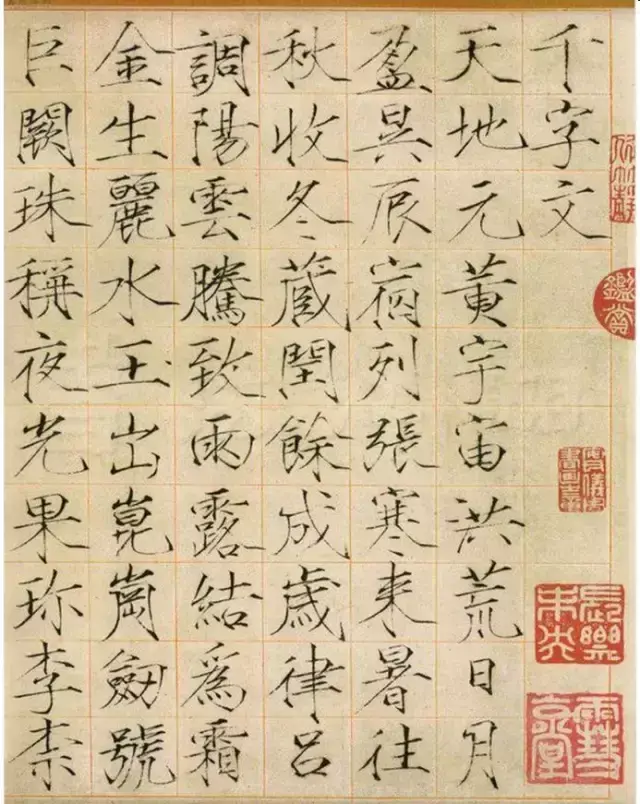 千字文
天地元黄宇宙洪荒日月
盈昃辰宿列張寒来暑往
秋收冬蔵閏餘成歲律吕
調陽雲騰致雨露結爲霜
金生麗水玉出崑崗劒號
巨闕珠稱夜光果珎李柰
鑑賞